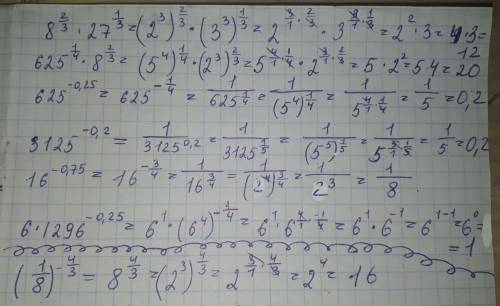 8^{2/3} · 27^{1/3} = (2^3)^{2/3} · (3^3)^{1/3} = 2^{3/1 · 2/3} · 3^{3/1 · 1/3} = 2^2 · 3 = 4 · 3 =
12
625^{1/4} · 8^{2/3} = (5^4)^{1/4} · (2^3)^{2/3} = 5^{4/1 · 1/4} · 2^{3/1 · 2/3} = 5 · 2^2 = 5 4 = 20
625^{-0,25} = 625^{-1/4} = 1/625^{1/4} = 1/(5^4)^{1/4} = 1/5^{4/1 · 1/4} = 1/5 = 0,2
3125^{-0,2} = 1/3125^{0,2} = 1/3125^{1/5} = 1/(5^5)^{1/5} = 1/5^{5/1 · 1/5} = 1/5 = 0,2
16^{-0,75} = 16^{-3/4} = 1/16^{3/4} = 1/(2^4)^{3/4} = 1/2^3 = 1/8.
6 · 1296^{-0,25} = 6^1 · (6^4)^{-1/4} = 6^1 · 6^{4/1 · -1/4} = 6^1 · 6^{-1} = 6^{1-1} = 6^0 =
= 1
(1/8)^{-4/3} = 8^{4/3} = (2^3)^{4/3} = 2^{3/1 · 4/3} = 2^4 = 16